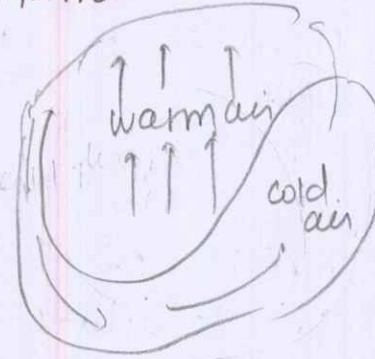 warm air
cold
air